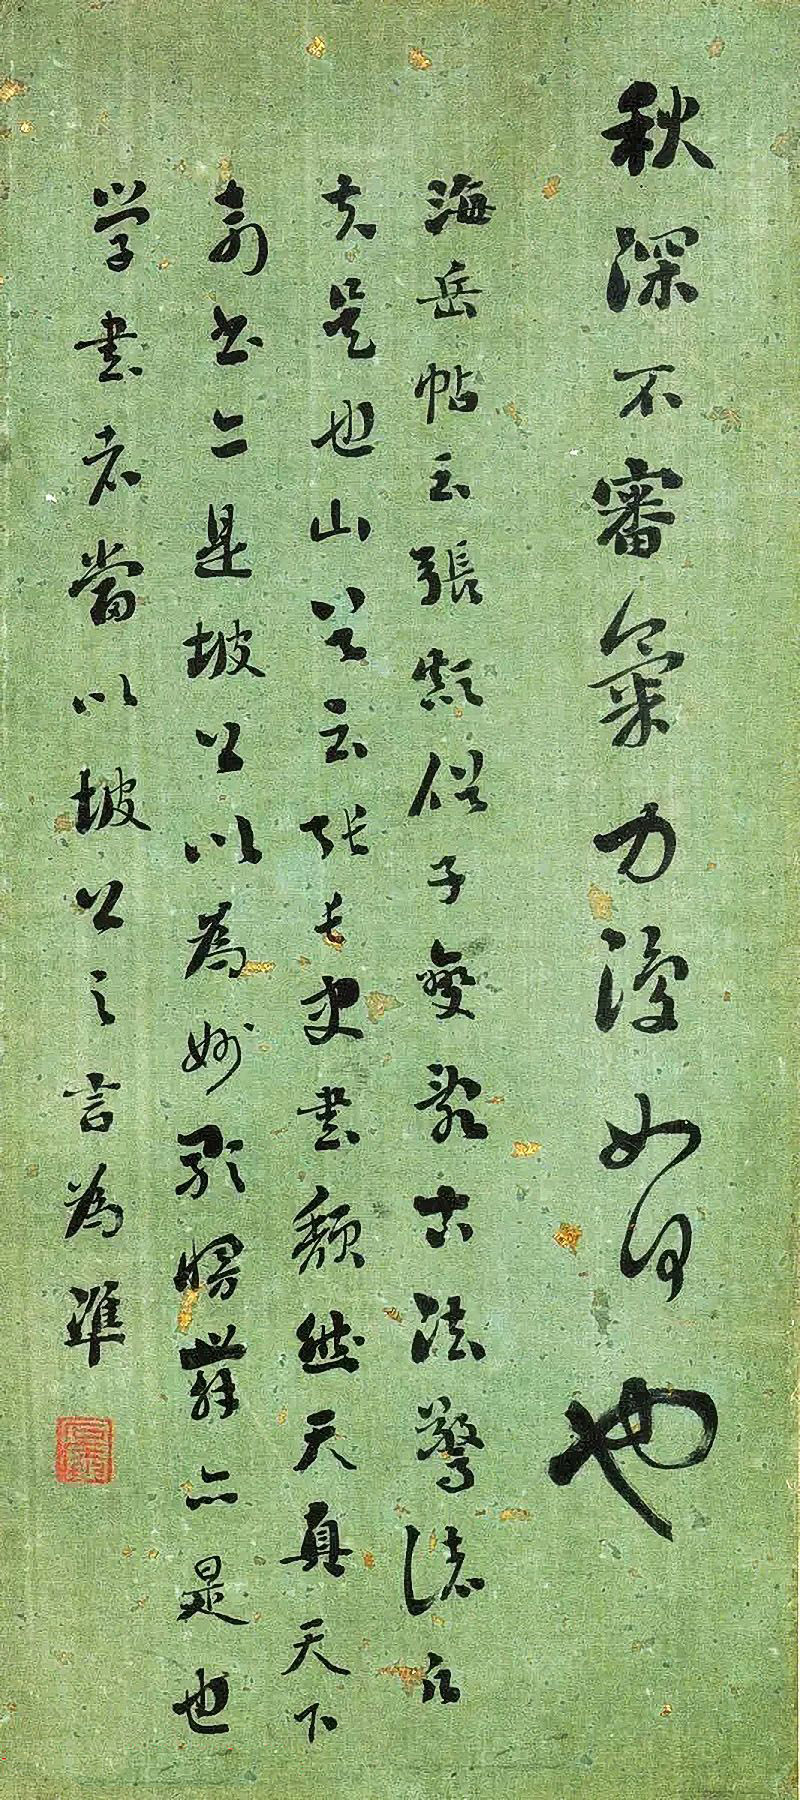 秋深不審氣力復如何也
海岳帖云張顛俗子變亂古法驚諸凡
夫是也山谷云張長史書頹然天真天下
奇書是坡公以為妙亦是也
學書者當以坡公之言為準